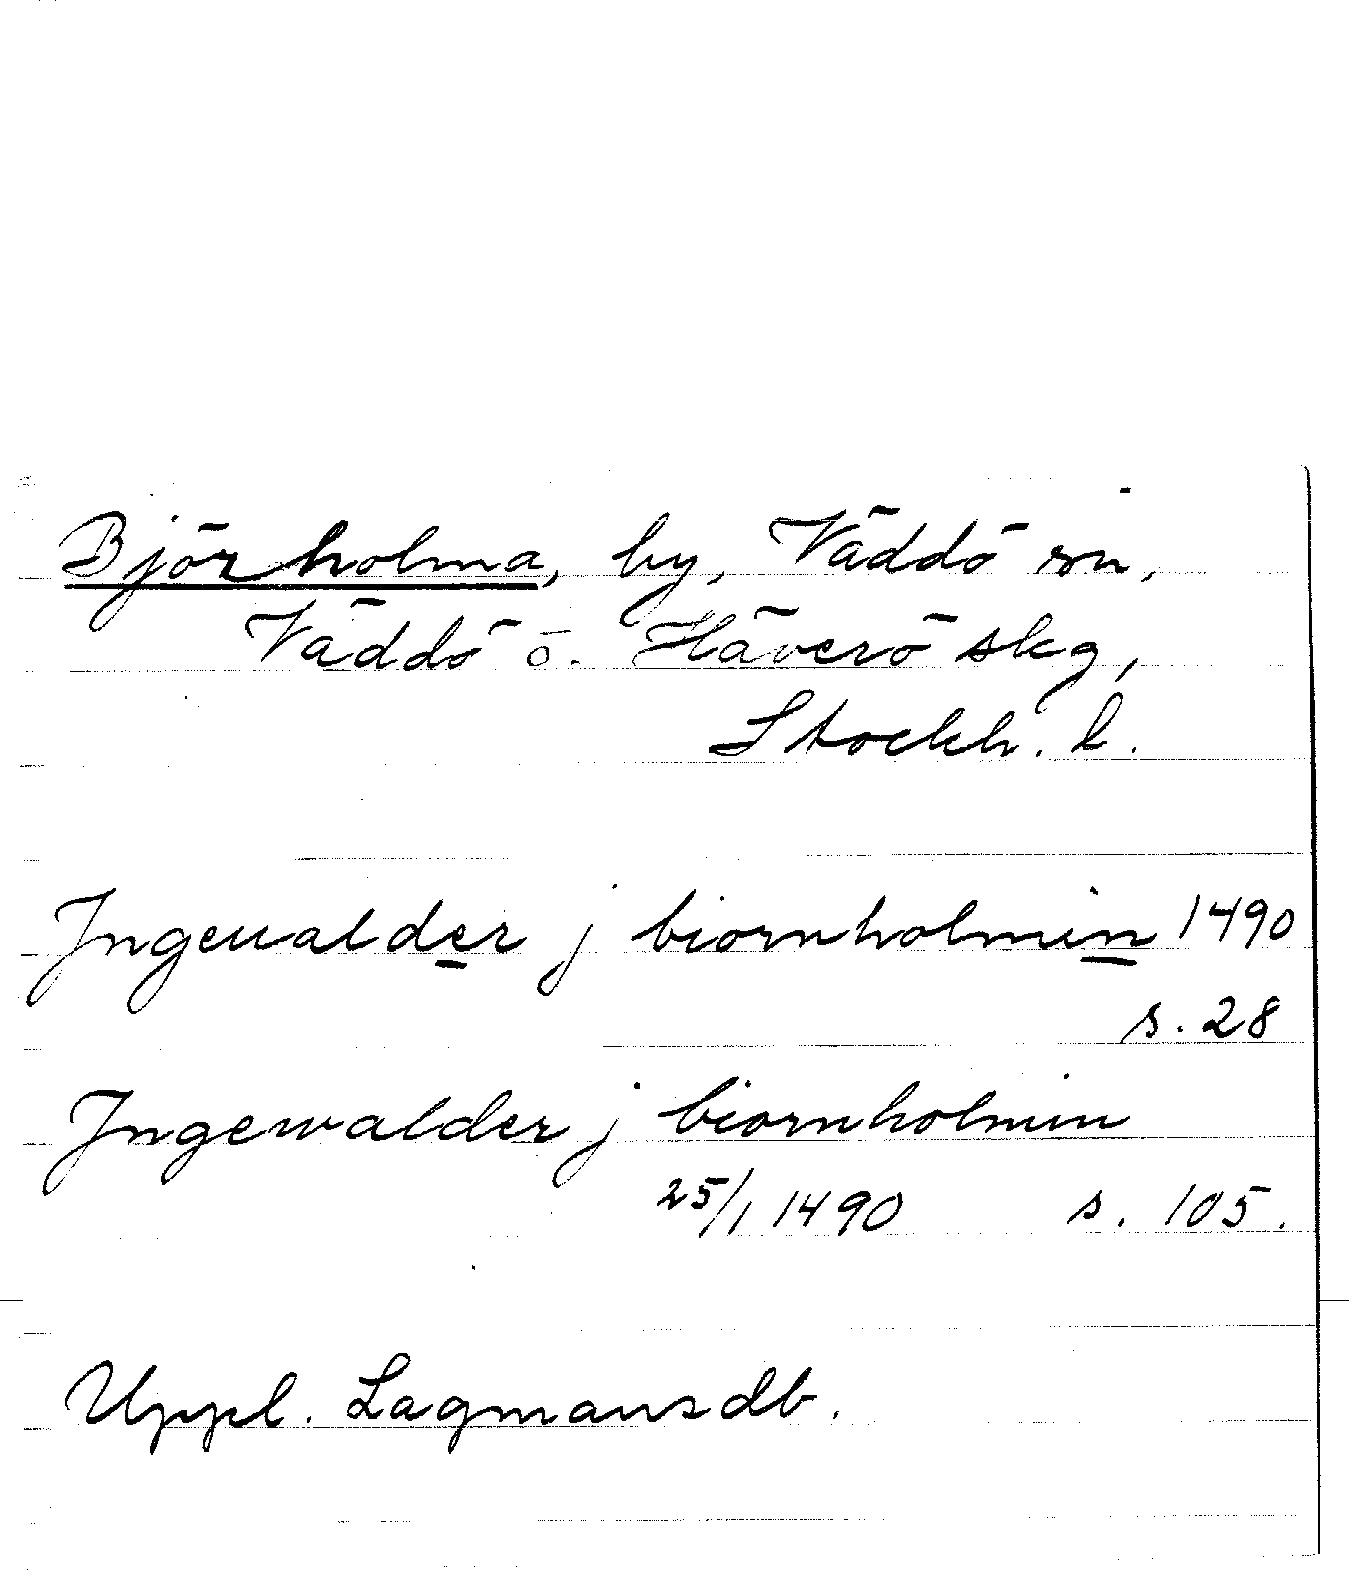 Björholma, by, Väddö sn,
Väddö o. Häverö skg,
Stockh. l.
Ingeualder j biornholmin 1490
s. 28
Ingewalder j biornholmin
25/1 1490 s. 105.
Uppl. Lagmansdb.